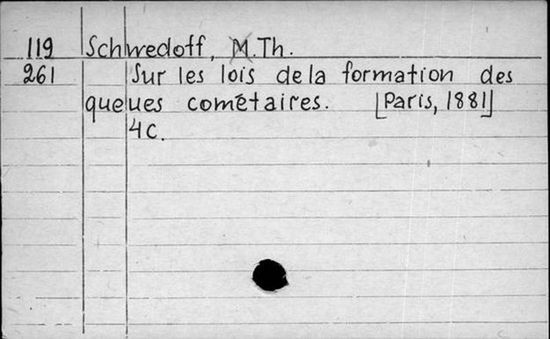 119 Schwedoff, M.Th.
261 Sur les lois de la formation des
queues cométaires. [Paris, 1881]
4c.